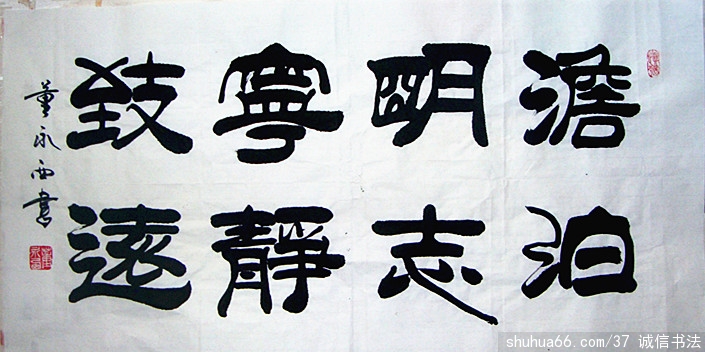 澹泊
明志
寧靜
致遠
董永西書
shuhua66.com/37 诚信书法